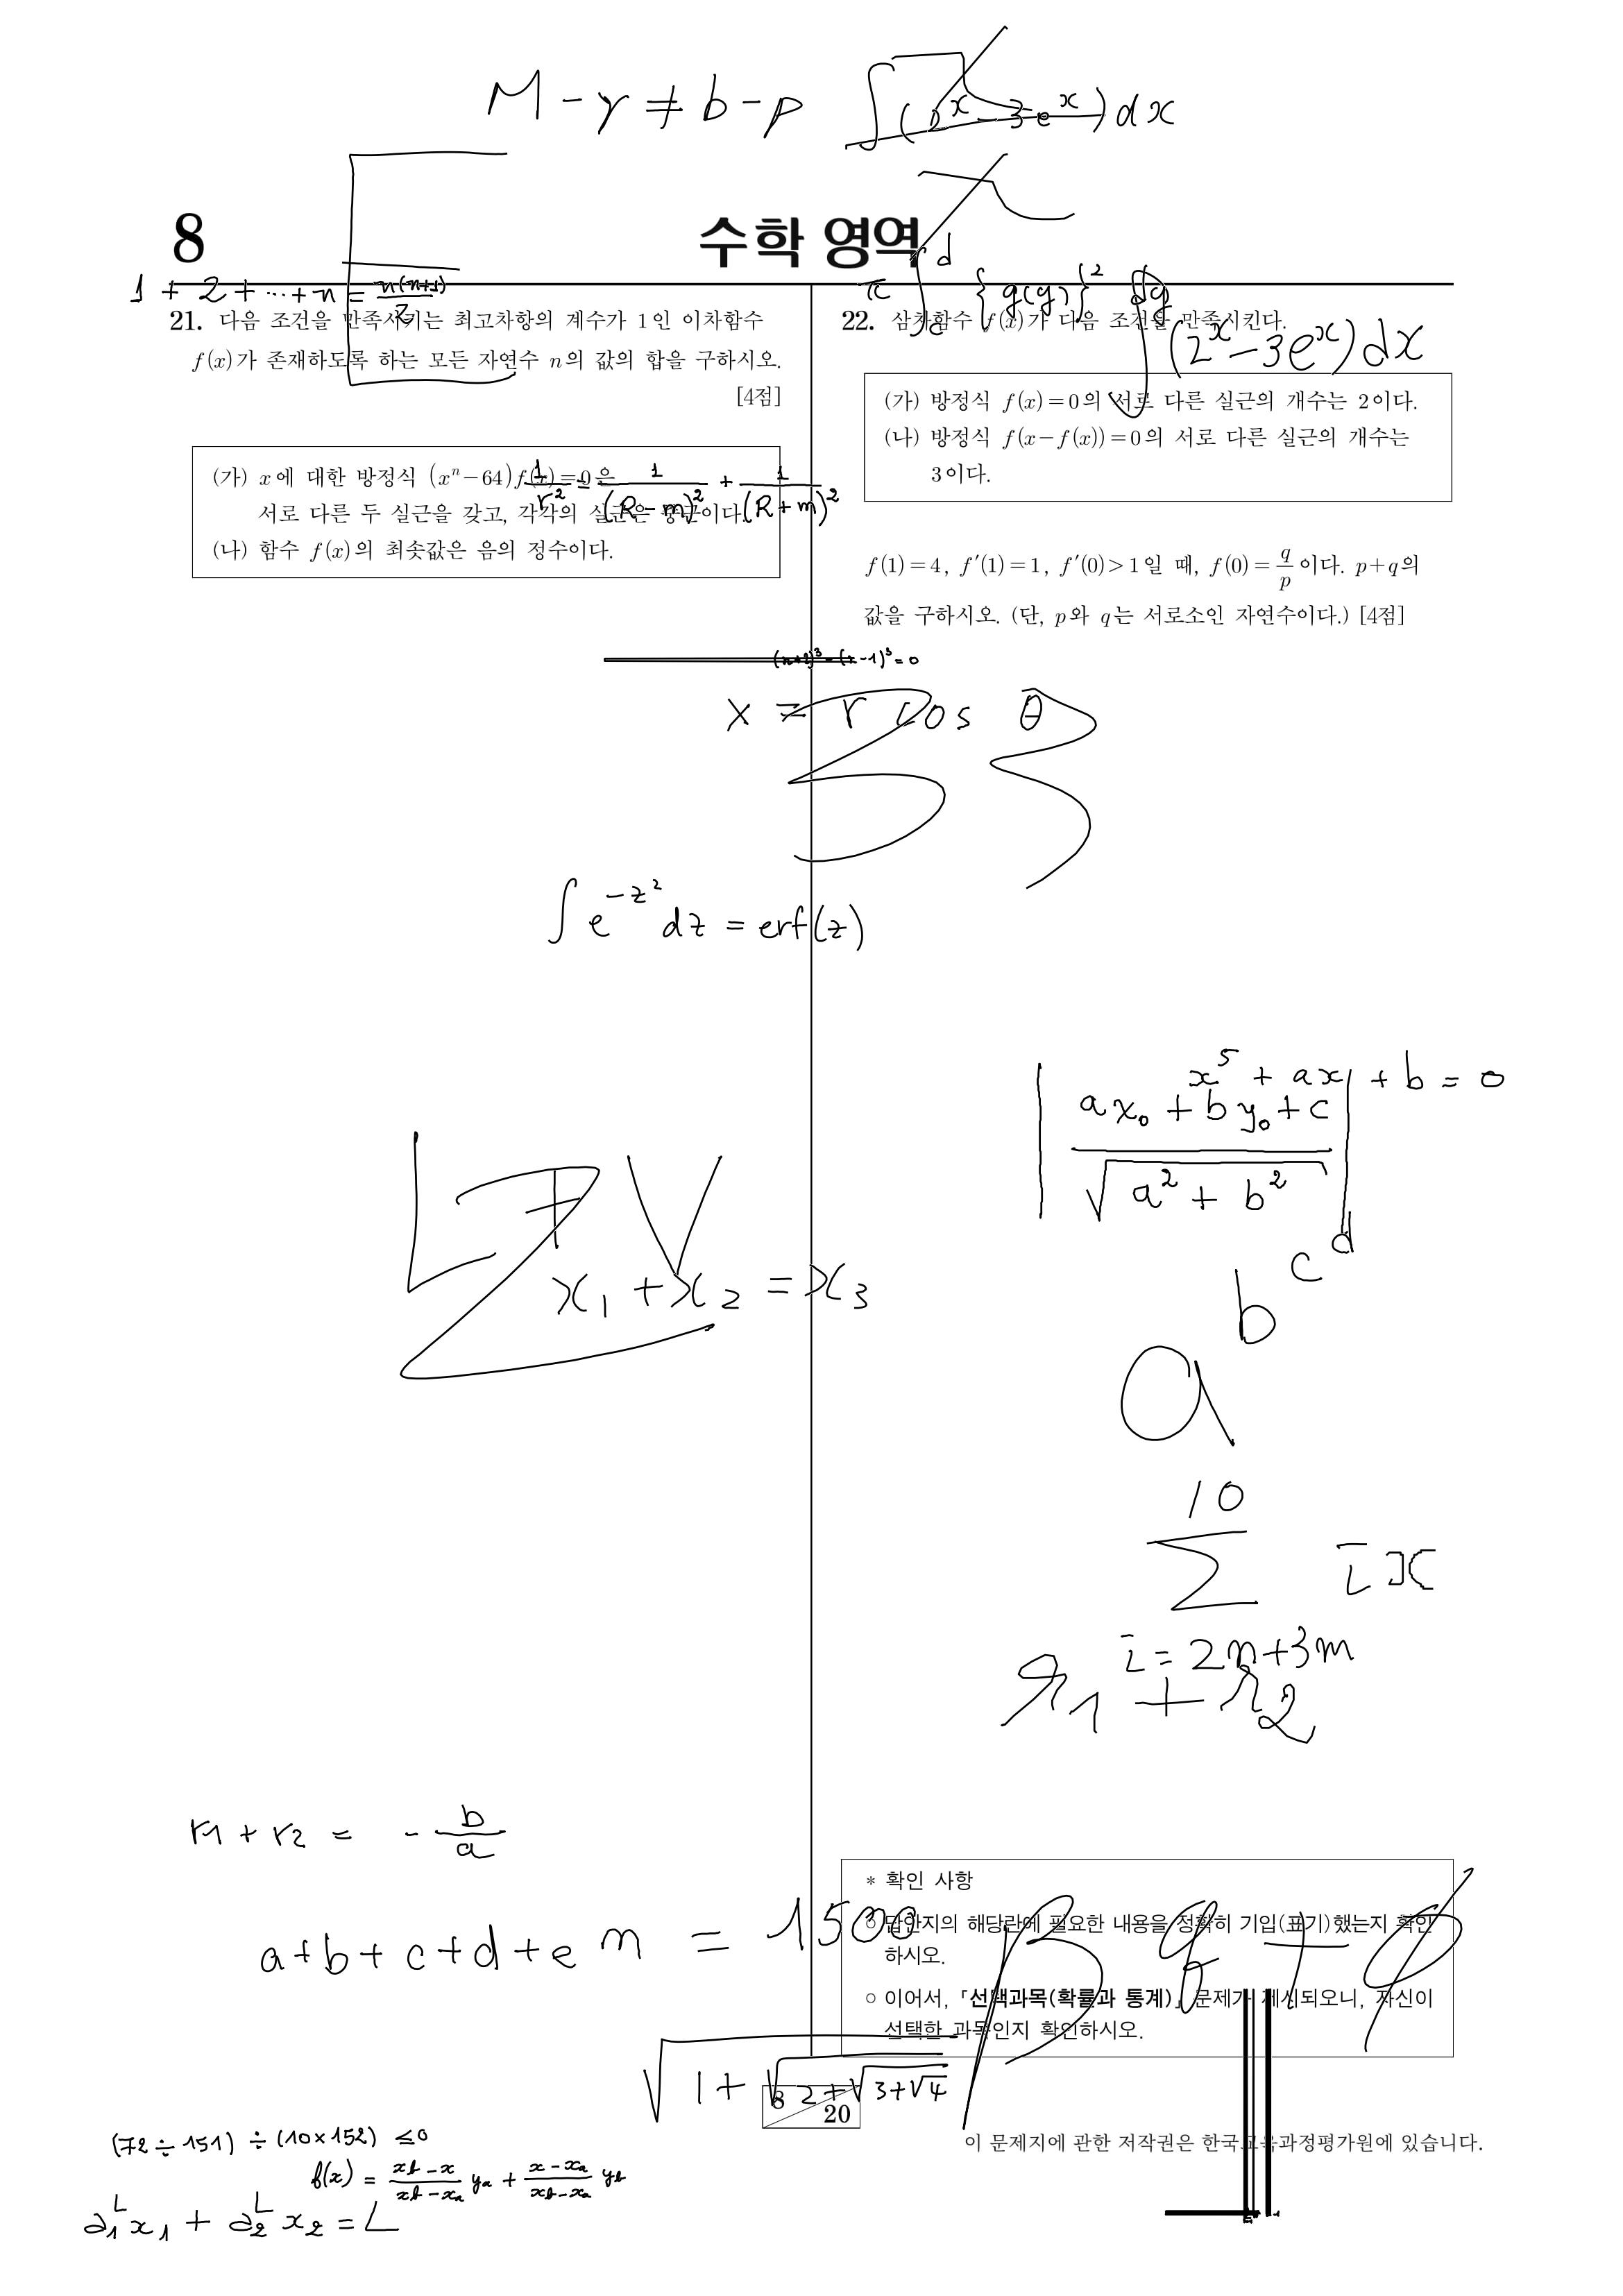 M - y ≠ b - p
∫(2^x - 3e^x)dx
8
수학 영역
1 + 2 + ... + n = n(n+1)/2
π∫_c^d {g(y)}^2 dy
∫(2^x - 3e^x)dx
21. 다음 조건을 만족시키는 최고차항의 계수가 1인 이차함수
f(x)가 존재하도록 하는 모든 자연수 n의 값의 합을 구하시오.
[4점]
(가) x에 대한 방정식 (x^n-64)f(x)=0은
서로 다른 두 실근을 갖고, 각각의 실근은 중근이다.
(나) 함수 f(x)의 최솟값은 음의 정수이다.
1/r^2 = 1/(R-m)^2 + 1/(R+m)^2
22. 삼차함수 f(x)가 다음 조건을 만족시킨다.
(가) 방정식 f(x)=0의 서로 다른 실근의 개수는 2이다.
(나) 방정식 f(x-f(x))=0의 서로 다른 실근의 개수는
3이다.
f(1)=4, f′(1)=1, f′(0)>1일 때, f(0)=q/p이다. p+q의
값을 구하시오. (단, p와 q는 서로소인 자연수이다.) [4점]
x = r cos θ
∫e^{-z^2}dz = erf(z)
x^5 + ax + b = 0
|(ax_0 + by_0 + c)/√(a^2 + b^2)|
x_1 + x_2 = x_3
a^{b^{c^d}}
∑_{i=2n+3m}^{10} ix
r_1 + r_2 = -b/a
a+b+c+d+e
m = 1500
* 확인 사항
○ 답안지의 해당란에 필요한 내용을 정확히 기입(표기)했는지 확인
하시오.
○ 이어서, 「선택과목(확률과 통계)」 문제가 제시되오니, 자신이
선택한 과목인지 확인하시오.
√(1+√(2+√(3+√4)))
8
20
이 문제지에 관한 저작권은 한국교육과정평가원에 있습니다.
(72÷151)÷(10×152) ≤0
f(x) = (x_b-x)/(x_b-x_a) y_a + (x-x_a)/(x_b-x_a) y_b
∂_1^L x_1 + ∂_2^L x_2 = L